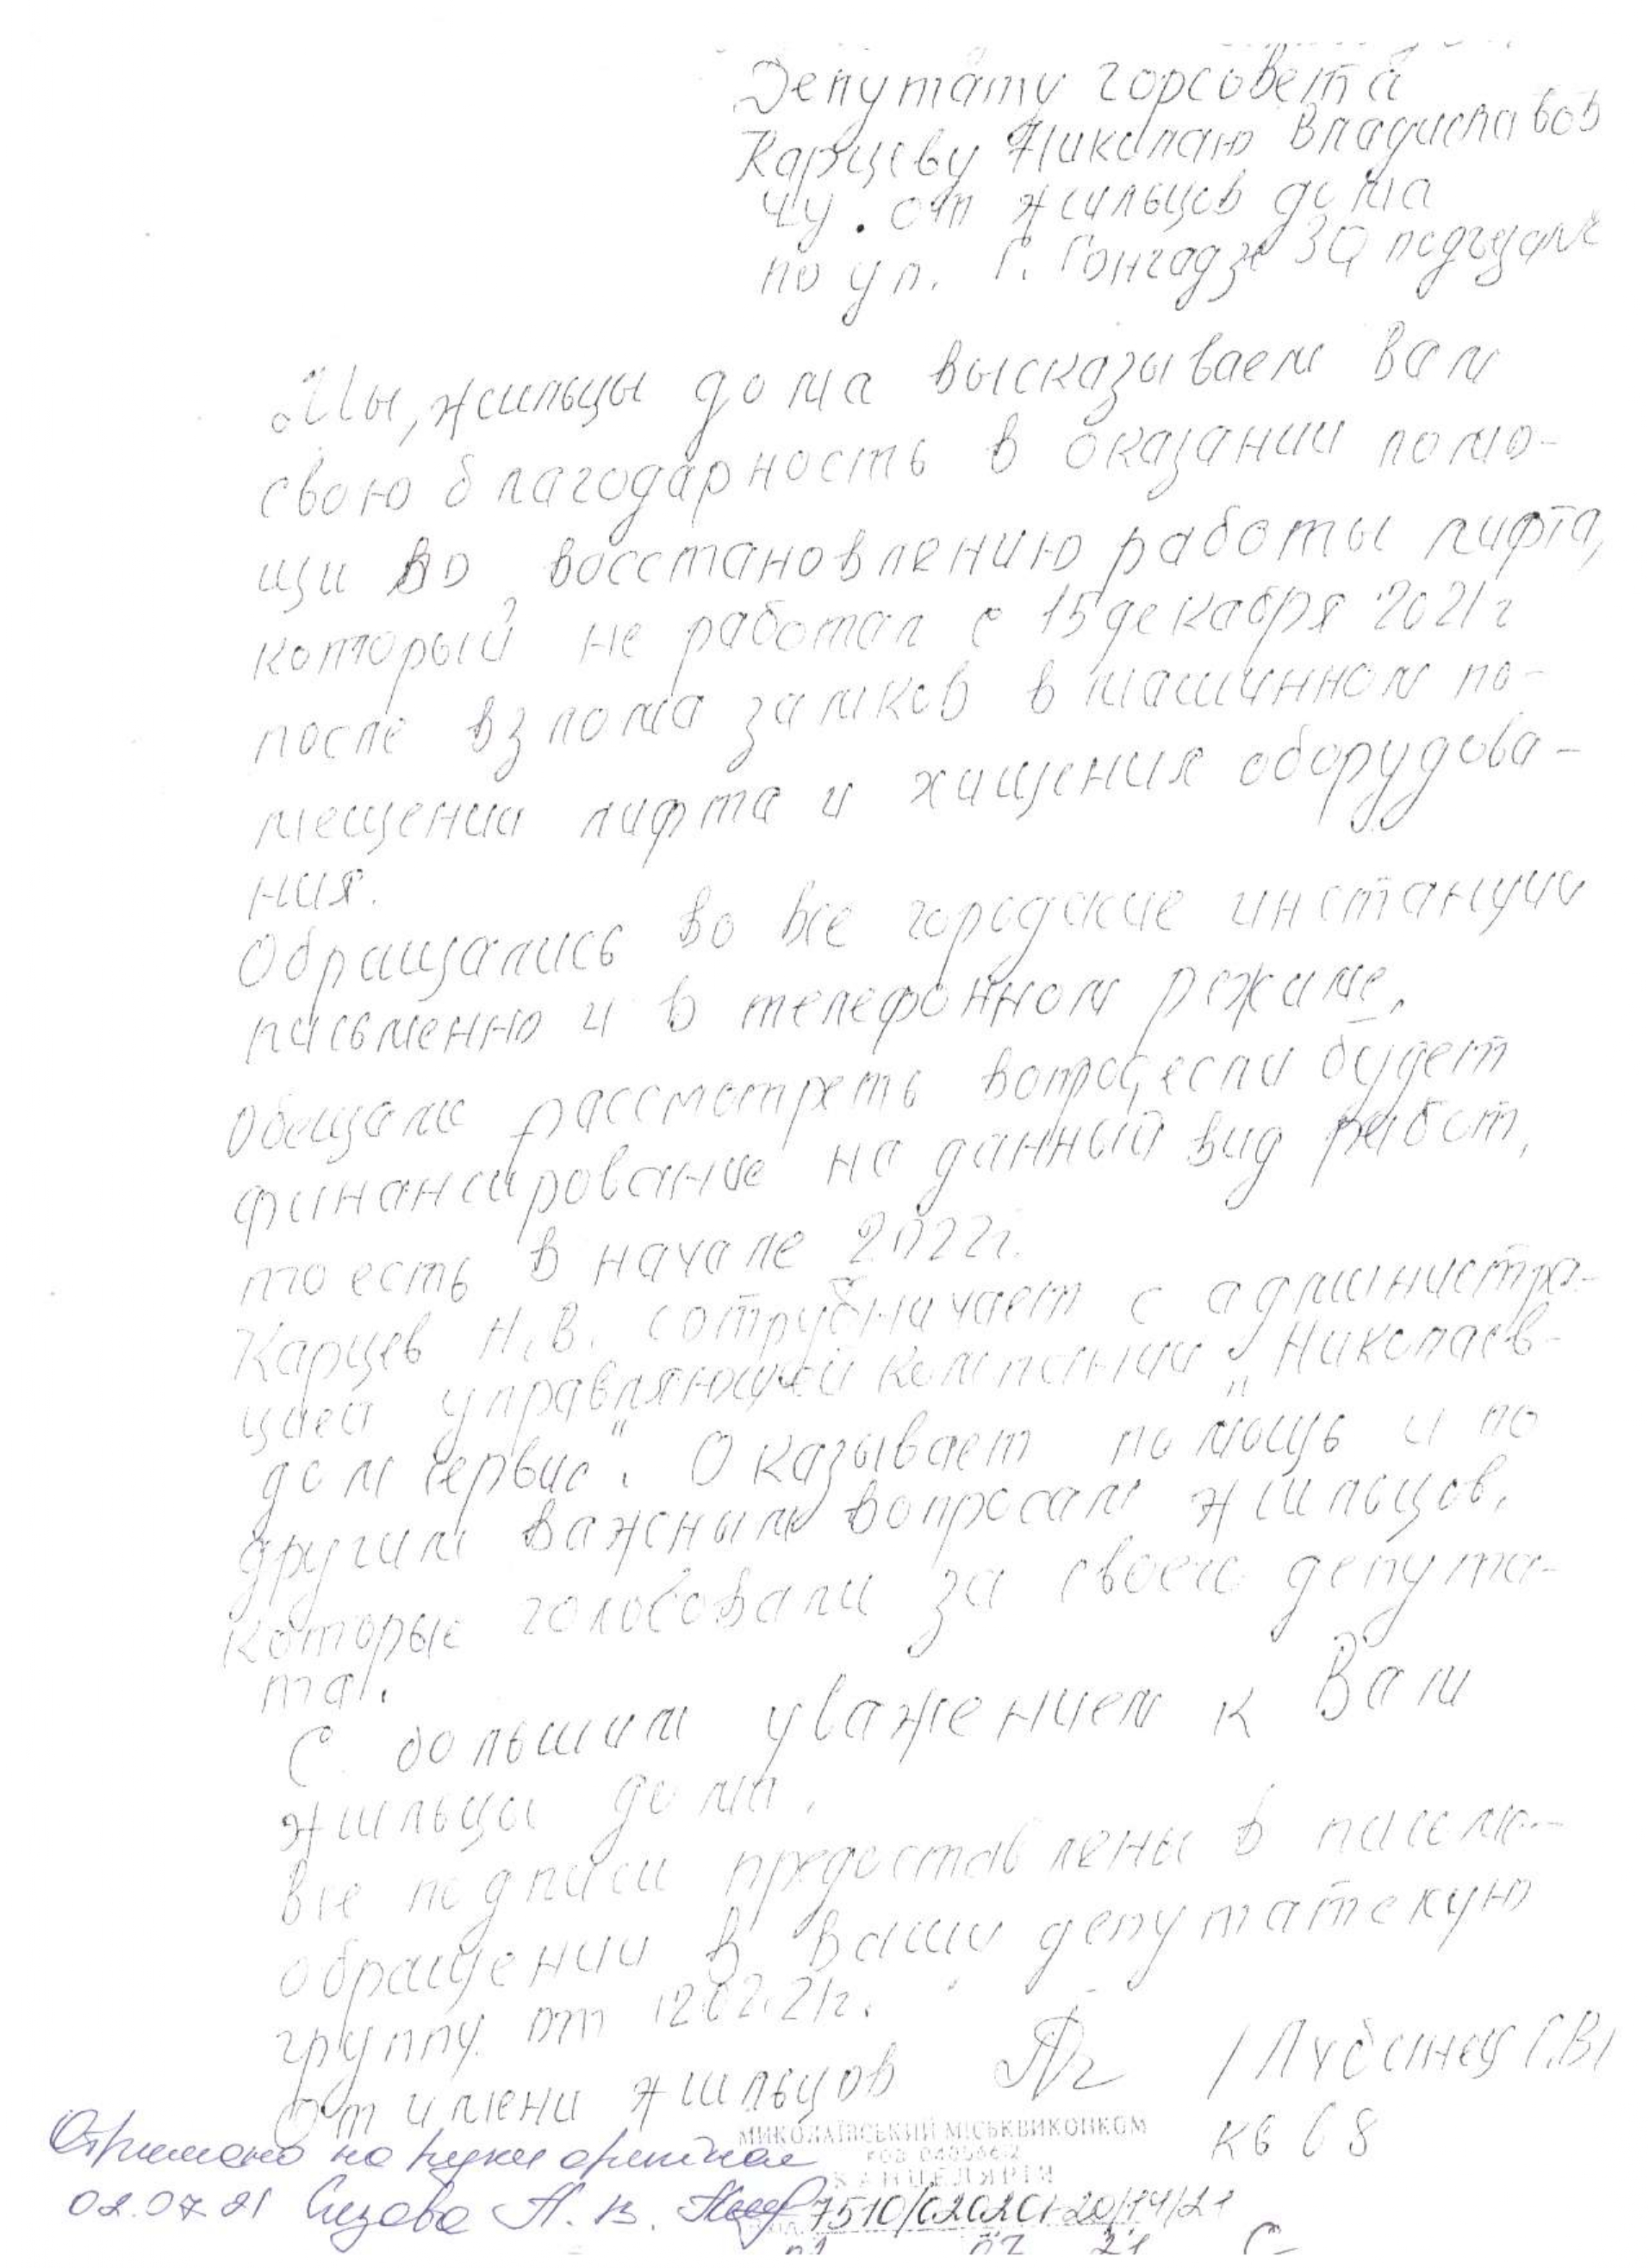 Депутату горсовета
Карцеву Николаю Владиславови
чу. от жильцов дома
по ул. Г. Гонгадзе
Мы, жильцы дома высказываем Вам
свою благодарность в оказании помо-
щи во восстановлению работы лифта,
который не работал с 15 декабря 2021г
после взлома замков в машинном по-
мещении лифта и хищения оборудова-
ния.
Обращались во все городские инстанции
письменно и в телефонном режиме.
Обещали рассмотреть вопрос, если будет
финансирование на данный вид работ,
то есть в начале 2022г.
Карцев Н.В. сотрудничает с администра-
цией управляющей компании „Николаев-
дом сервис". Оказывает помощь и по
другим важным вопросам жильцов,
которые голосовали за своего депута-
та.
С большим уважением к Вам
жильцы дома.
Все подписи предоставлены в
обращении в Вашу депутатскую
группу от 12.02.21г.
От имени жильцов
кв 68
Отримано на руки оригінал
02.07.21
МИКОЛАЇВСЬКИЙ МІСЬКВИКОНКОМ
КАНЦЕЛЯРІЯ